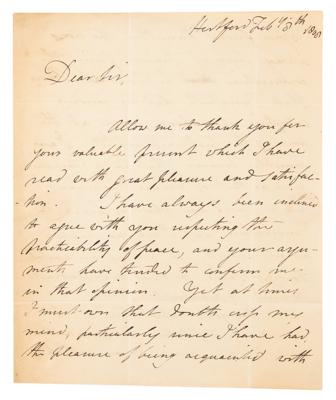 Hertford Feby 8th
Dear Sir,
Allow me to thank you for
your valuable present which I have
read with great pleasure and satisfac-
-tion. I have always been inclined
to agree with you respecting the
practicability of peace, and your argu-
ments have tended to confirm me
in that opinion. Yet at times
I must own that doubts cross my
mind, particularly since I have had
the pleasure of being acquainted with